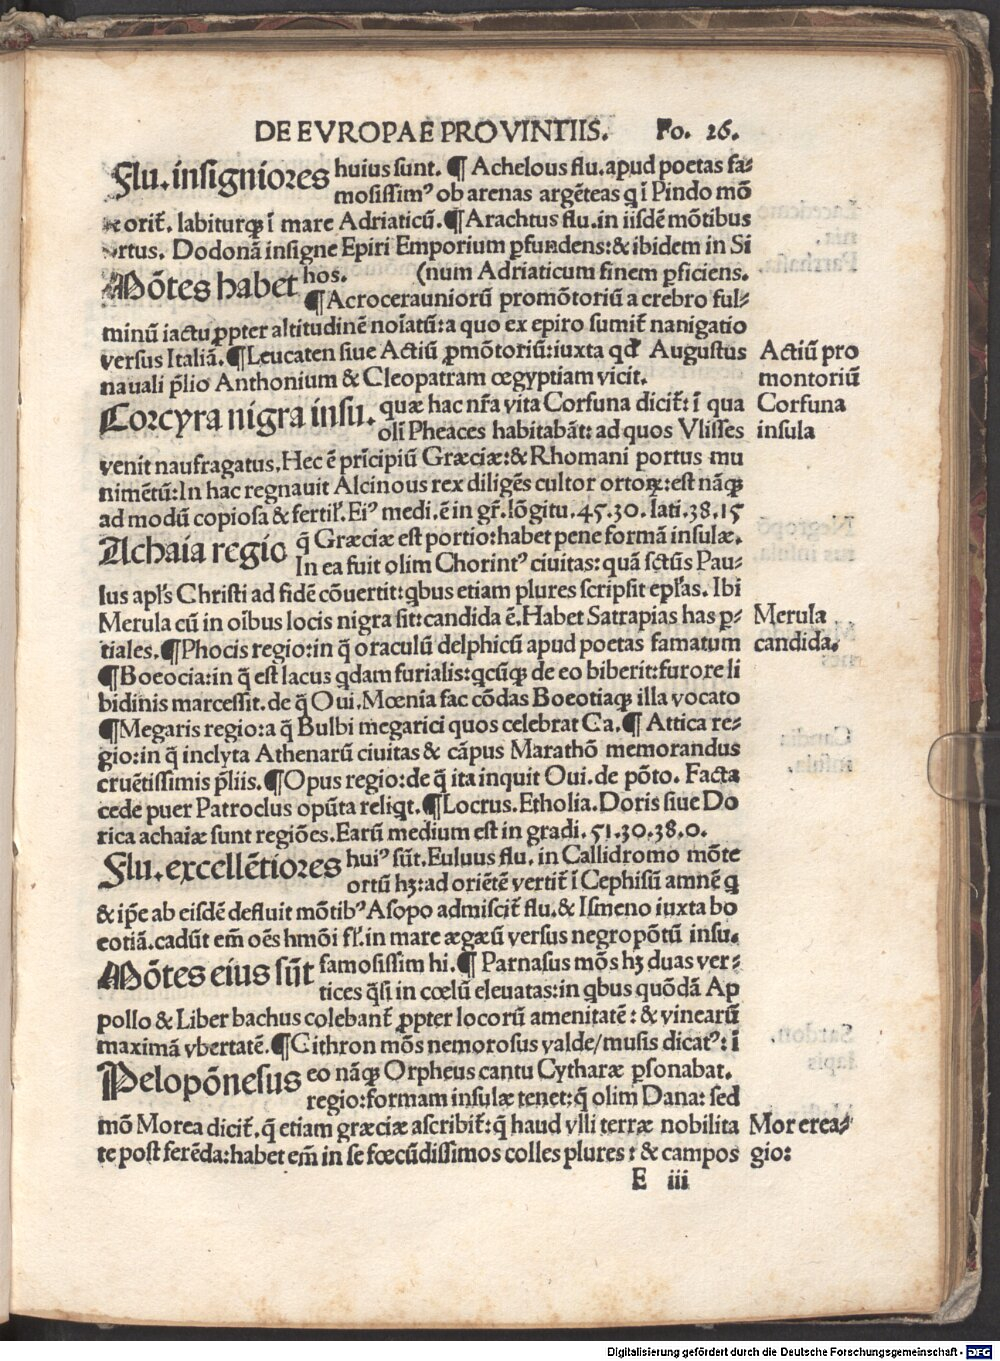 DE EVROPAE PROVINTIIS. Fo. 26.
Flu. insigniores huius sunt. ¶ Achelous flu. apud poetas fa⸗
mosissimꝰ ob arenas argẽteas q ĩ Pindo mõ
te orit̃. labiturqꝫ ĩ mare Adriaticũ. ¶ Arachtus flu. in iisdẽ mõtibus
ortus. Dodonã insigne Epiri Emporium ꝑfundens: & ibidem in Si
Mõtes habet hos. (num Adriaticum finem ꝑficiens.
¶ Acrocerauniorũ promõtoriũ a crebro ful⸗
minũ iactu ꝓpter altitudinẽ noĩatũ: a quo ex epiro sumit̃ nanigatio
versus Italiã. ¶ Leucaten siue Actiũ ꝓmõtoriũ: iuxta qd̃ Augustus
nauali p̃lio Anthonium & Cleopatram œgyptiam vicit.
Actiũ pro
montoriũ
Corcyra nigra insu. quæ hac nr̃a vita Corfuna dicit̃: ĩ qua
oli᷈ Pheaces habitabãt: ad quos Vlisses
Corfuna
insula
venit naufragatus. Hec ẽ pri᷈cipiũ Græciæ: & Rhomani portus mu
nimẽtũ: In hac regnauit Alcinous rex diligẽs cultor ortoꝝ: est nãqꝫ
ad modũ copiosa & fertil̃. Eiꝰ medi. ẽ in gr̃. lõgitu. 45. 30. lati. 38. 15
Achaia regio q̃ Græciæ est portio: habet pene formã insulæ.
In ea fuit olim Chorintꝰ ciuitas: quã sctũs Pau⸗
lus apl̃s Christi ad fidẽ cõuertit: qbus etiam plures scripsit epl̃as. Ibi
Merula cũ in oi᷈bus locis nigra sit: candida ẽ. Habet Satrapias has ꝑ⸗
tiales. ¶ Phocis regio: in q̃ oraculũ delphicũ apud poetas famatum
Merula
candida.
¶ Boeocia: in q̃ est lacus qdam furialis: qcũqꝫ de eo biberit: furore li
bidinis marcessit. de q̃ Oui. Mœnia fac cõdas Boeotiaqꝫ illa vocato
¶ Megaris regio: a q̃ Bulbi megarici quos celebrat Ca. ¶ Attica re⸗
gio: in q̃ inclyta Athenarũ ciuitas & cãpus Marathõ memorandus
cruẽtissimis p̃liis. ¶ Opus regio: de q̃ ita inquit Oui. de põto. Facta
cede puer Patroclus opũta reliqt. ¶ Locrus. Etholia. Doris siue Do
rica achaiæ sunt regiões. Earũ medium est in gradi. 51. 30. 38. 0.
Flu. excellẽtiores huiꝰ sũt. Euluus flu. in Callidromo mõte
ortũ hꝫ: ad oriẽtẽ vertit̃ ĩ Cephisũ amnẽ q
& ip̃e ab eisdẽ defluit mõtibꝰ Asopo admiscit̃ flu. & Ismeno iuxta bo
eotiã. cadũt em̃ oẽs hmõi fl̃. in mare ægæũ versus negropõtũ insu.
Mõtes eius sũt famosissim hi. ¶ Parnasus mõs hꝫ duas ver⸗
tices q̃si in cœlũ eleuatas: in qbus quõdã Ap
pollo & Liber bachus colebant̃ ꝓpter locorũ amenitatẽ: & vinearũ
maximã vbertatẽ. ¶ Githron mõs nemorosus valde/ musis dicatꝰ: ĩ
Pelopõnesus eo nãqꝫ Orpheus cantu Cytharæ ꝑsonabat.
regio: formam insulæ tenet: q̃ olim Dana: sed
mõ Morea dicit̃. q̃ etiam græciæ ascribit̃: q̃ haud vlli terræ nobilita
te post ferẽda: habet em̃ in se fœcũdissimos colles plures: & campos
Morea re⸗
gio:
E iii
Digitalisierung gefördert durch die Deutsche Forschungsgemeinschaft - DFG